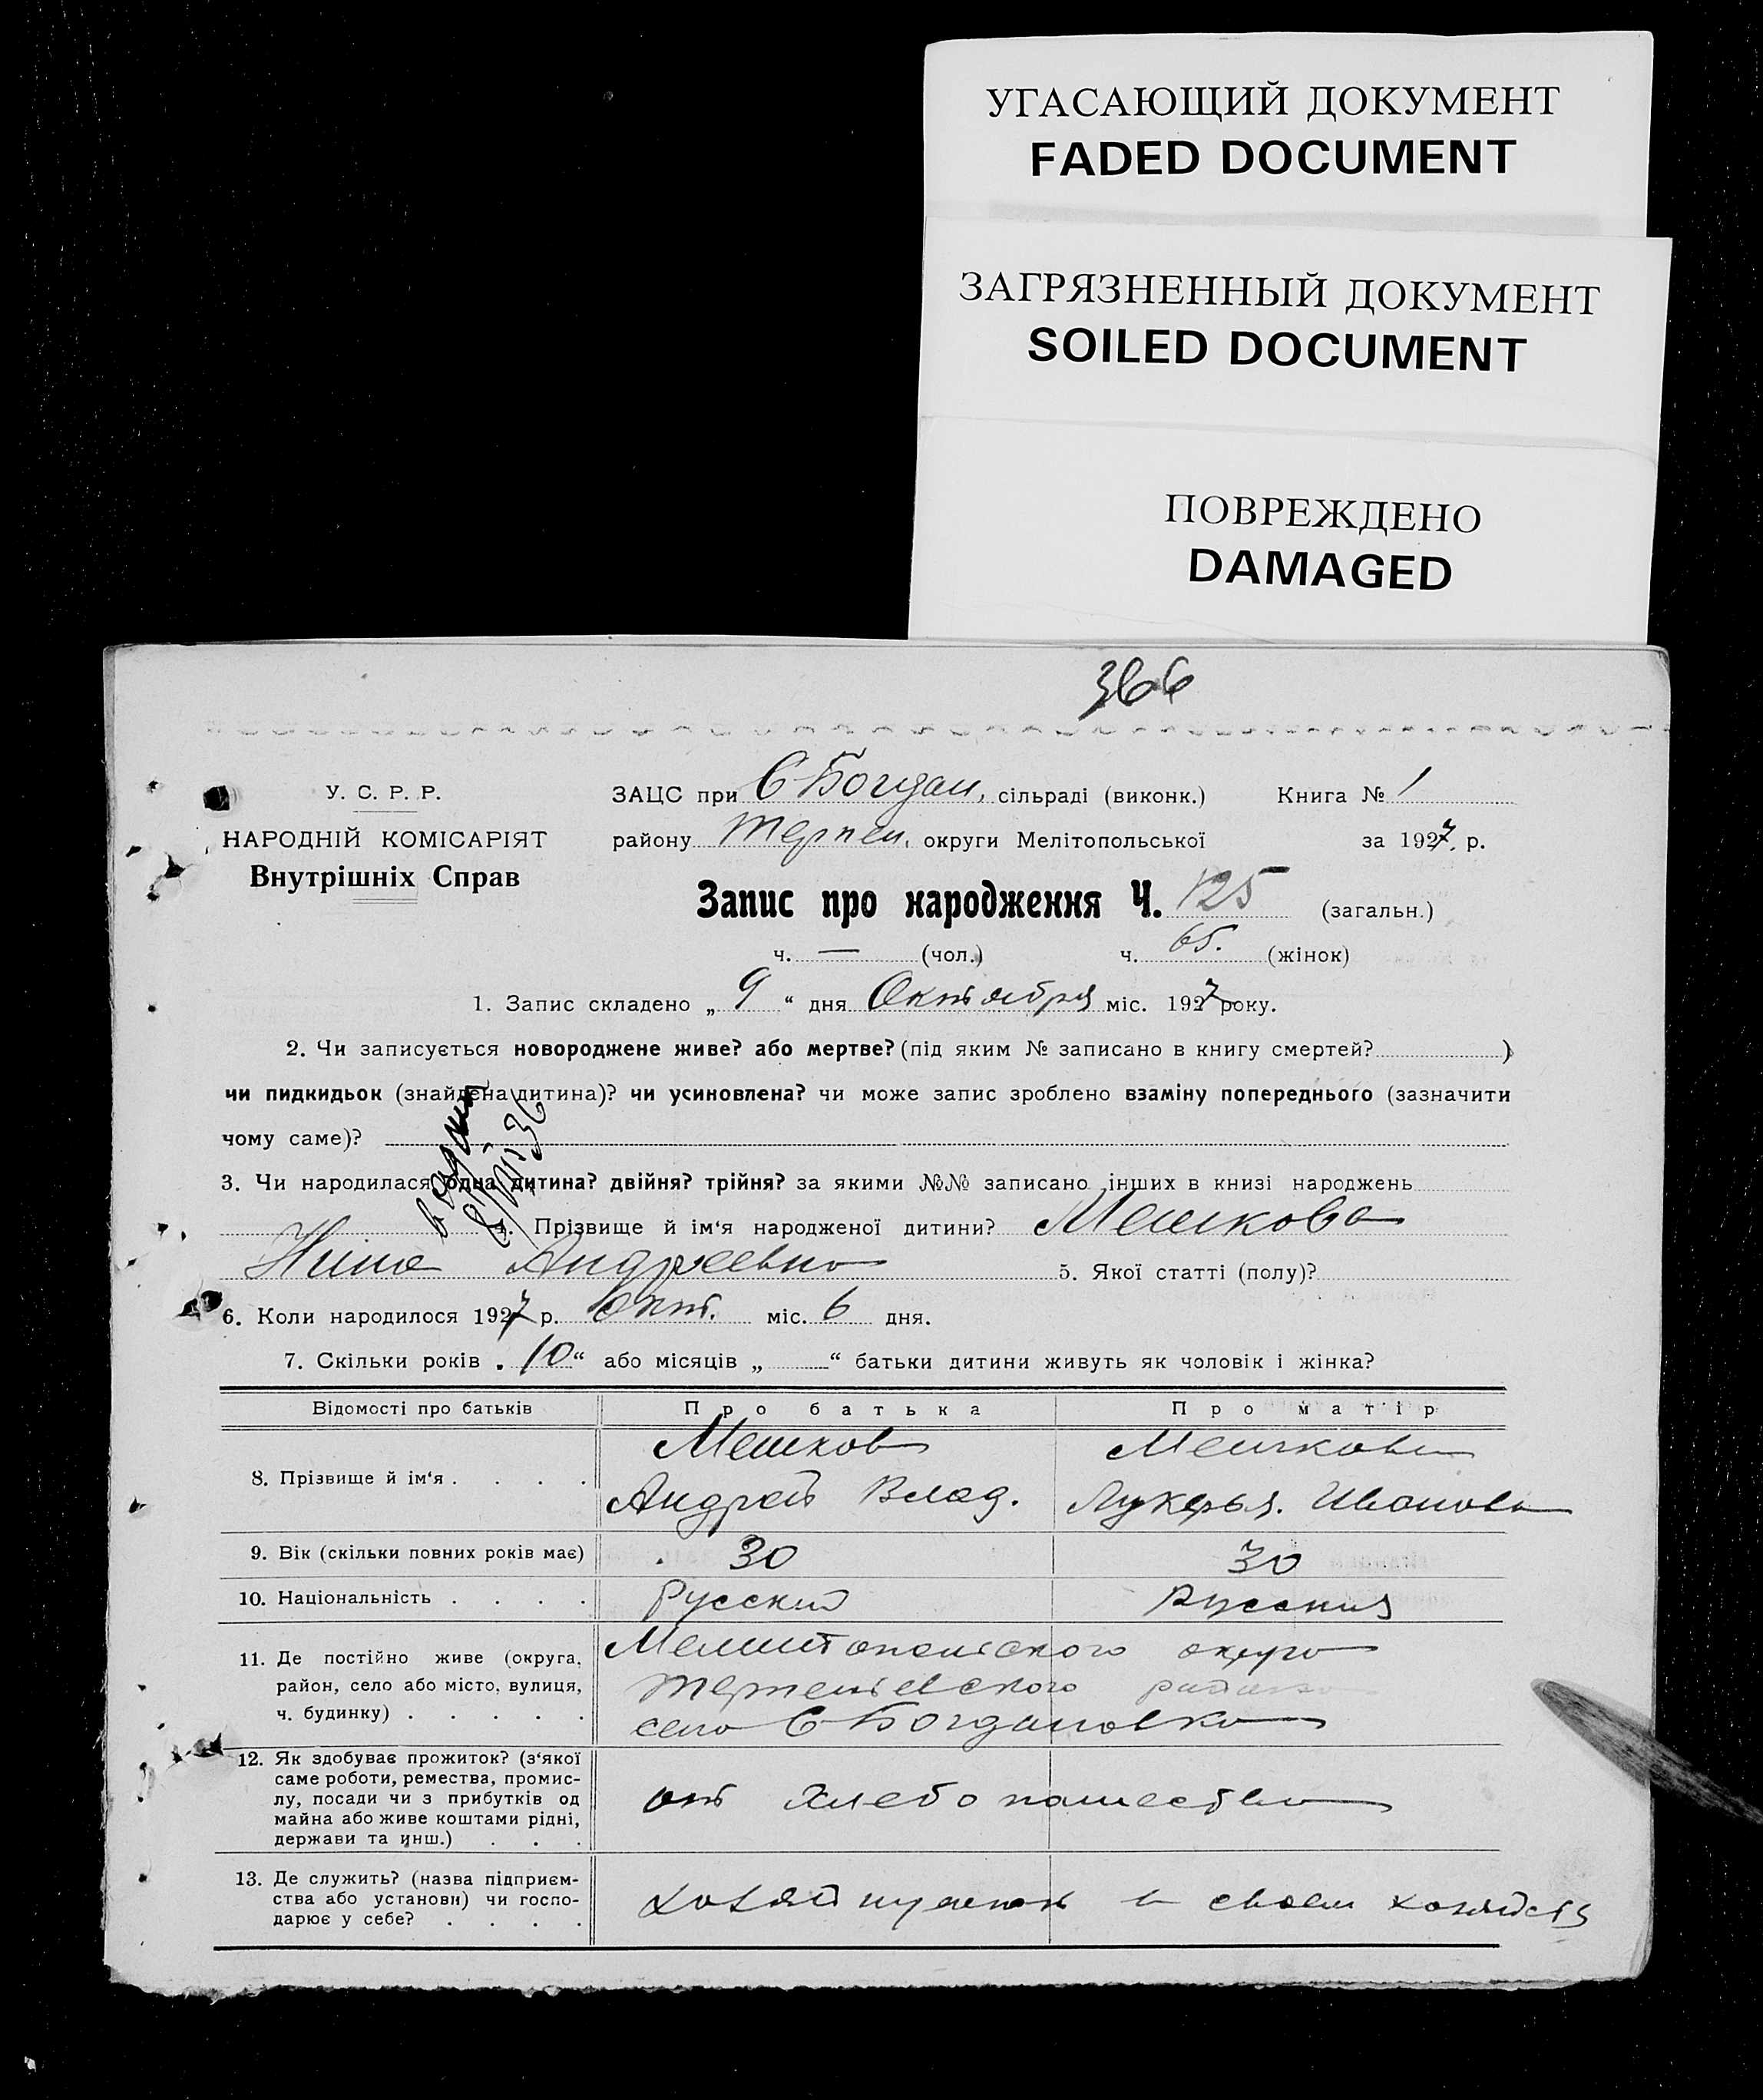 УГАСАЮЩИЙ ДОКУМЕНТ
FADED DOCUMENT
ЗАГРЯЗНЕННЫЙ ДОКУМЕНТ
SOILED DOCUMENT
ПОВРЕЖДЕНО
DAMAGED
366
У. С. Р. Р.
НАРОДНІЙ КОМІСАРІЯТ
Внутрішніх Справ
ЗАЦС при С-Богдан, сільраді (виконк.) Книга № 1
району Терпен. округи Мелітопольської за 1927 р.
Запис про народження Ч. 125 (загальн.)
ч. — (чол.) ч. 65. (жінок)
1. Запис складено „ 9 “ дня Октября міс. 1927 року.
2. Чи записується новороджене живе? або мертве? (під яким № записано в книгу смертей? )
чи пидкидьок (знайдена дитина)? чи усиновлена? чи може запис зроблено взаміну попереднього (зазначити
чому саме)?
3. Чи народилася одна дитина? двійня? трійня? за якими №№ записано інших в книзі народжень
4. Прізвище й ім'я народженої дитини? Мешкова
Нина Андреевна 5. Якої статті (полу)?
6. Коли народилося 1927 р. Окт. міс. 6 дня.
7. Скільки років „ 10 “ або місяців „ “ батьки дитини живуть як чоловік і жінка?
Відомості про батьків Про батька Про матір
8. Прізвище й ім'я . . . . Мешков Мешкова
Андрей Влад. Лукерья. Иванова
9. Вік (скільки повних років має) 30 30
10. Національність . . . . Русский Русския
11. Де постійно живе (округа, Мелитопольского округа
район, село або місто, вулиця, Терпеньевского района
ч. будинку) . . . . . село С-Богдановка
12. Як здобуває прожиток? (з'якої
саме роботи, ремества, промис-
лу, посади чи з прибутків од от хлебопашества
майна або живе коштами рідні,
держави та инш.) . . .
13. Де служить? (назва підприєм-
ства або установи) чи госпо- в своем
дарює у себе? . . . .